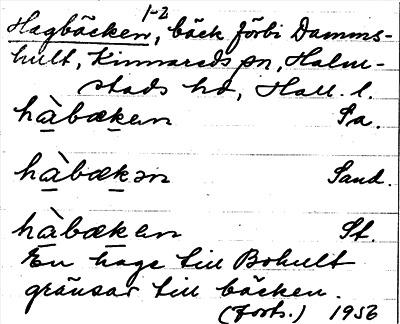 1-2
Hagbäcken, bäck förbi Damms-
hult, Kinnareds sn, Halm-
stads hd, Hall. l.
hàbækan Sa.
hàbækən Sand.
hàbækan St.
En hage till Bohult
gränsar till bäcken.
(forts.) 1956